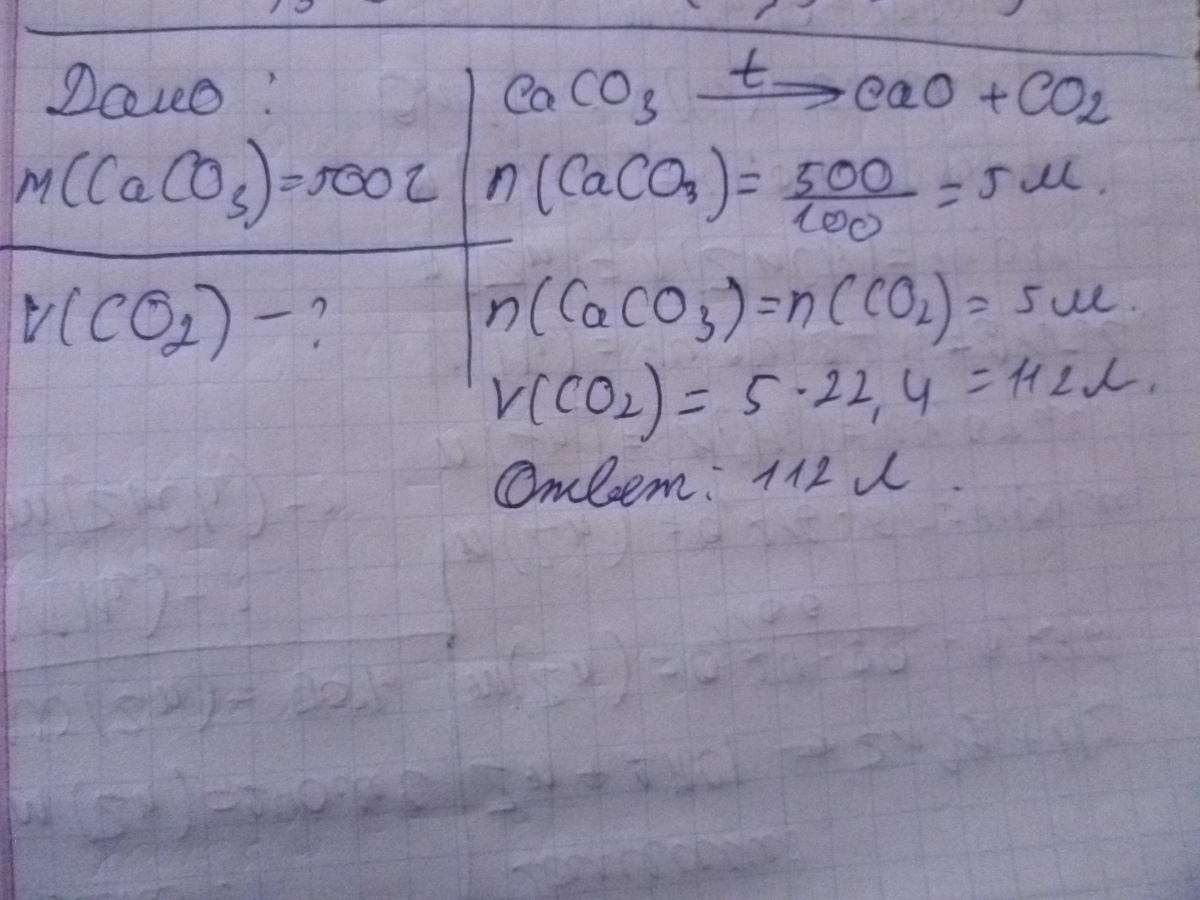 Дано:
m(CaCO3)=500г
V(CO2) - ?
CaCO3 t→ CaO + CO2
n(CaCO3) = 500/100 = 5 м.
n(CaCO3)=n(CO2)= 5м.
V(CO2) = 5·22,4 = 112л.
Ответ: 112 л.